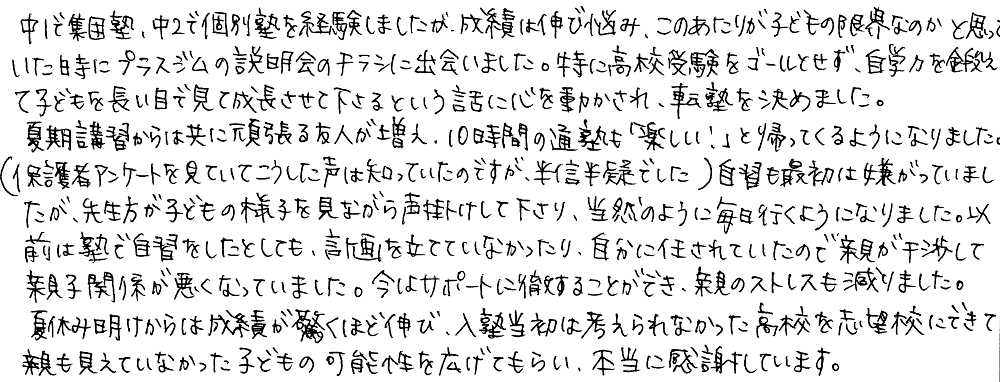 中1で集団塾、中2で個別塾を経験しましたが、成績は伸び悩み、このあたりが子どもの限界なのかと思って
いた時にプラスジムの説明会のチラシに出会いました。特に高校受験をゴールとせず、自学力を鍛え
て子どもを長い目で見て成長させて下さるという話に心を動かされ、転塾を決めました。
夏期講習からは共に頑張る友人が増え、10時間の通塾も「楽しい!」と帰ってくるようになりました。
(保護者アンケートを見ていてこうした声は知っていたのですが、半信半疑でした)自習も最初は嫌がっていまし
たが、先生方が子どもの様子を見ながら声掛けして下さり、当然のように毎日行くようになりました。以
前は塾で自習をしたとしても、計画を立てていなかったり、自分に任されていたので親が干渉して
親子関係が悪くなっていました。今はサポートに徹することができ、親のストレスも減りました。
夏休み明けからは成績が驚くほど伸び、入塾当初は考えられなかった高校を志望校にできて
親も見えていなかった子どもの可能性を広げてもらい、本当に感謝しています。